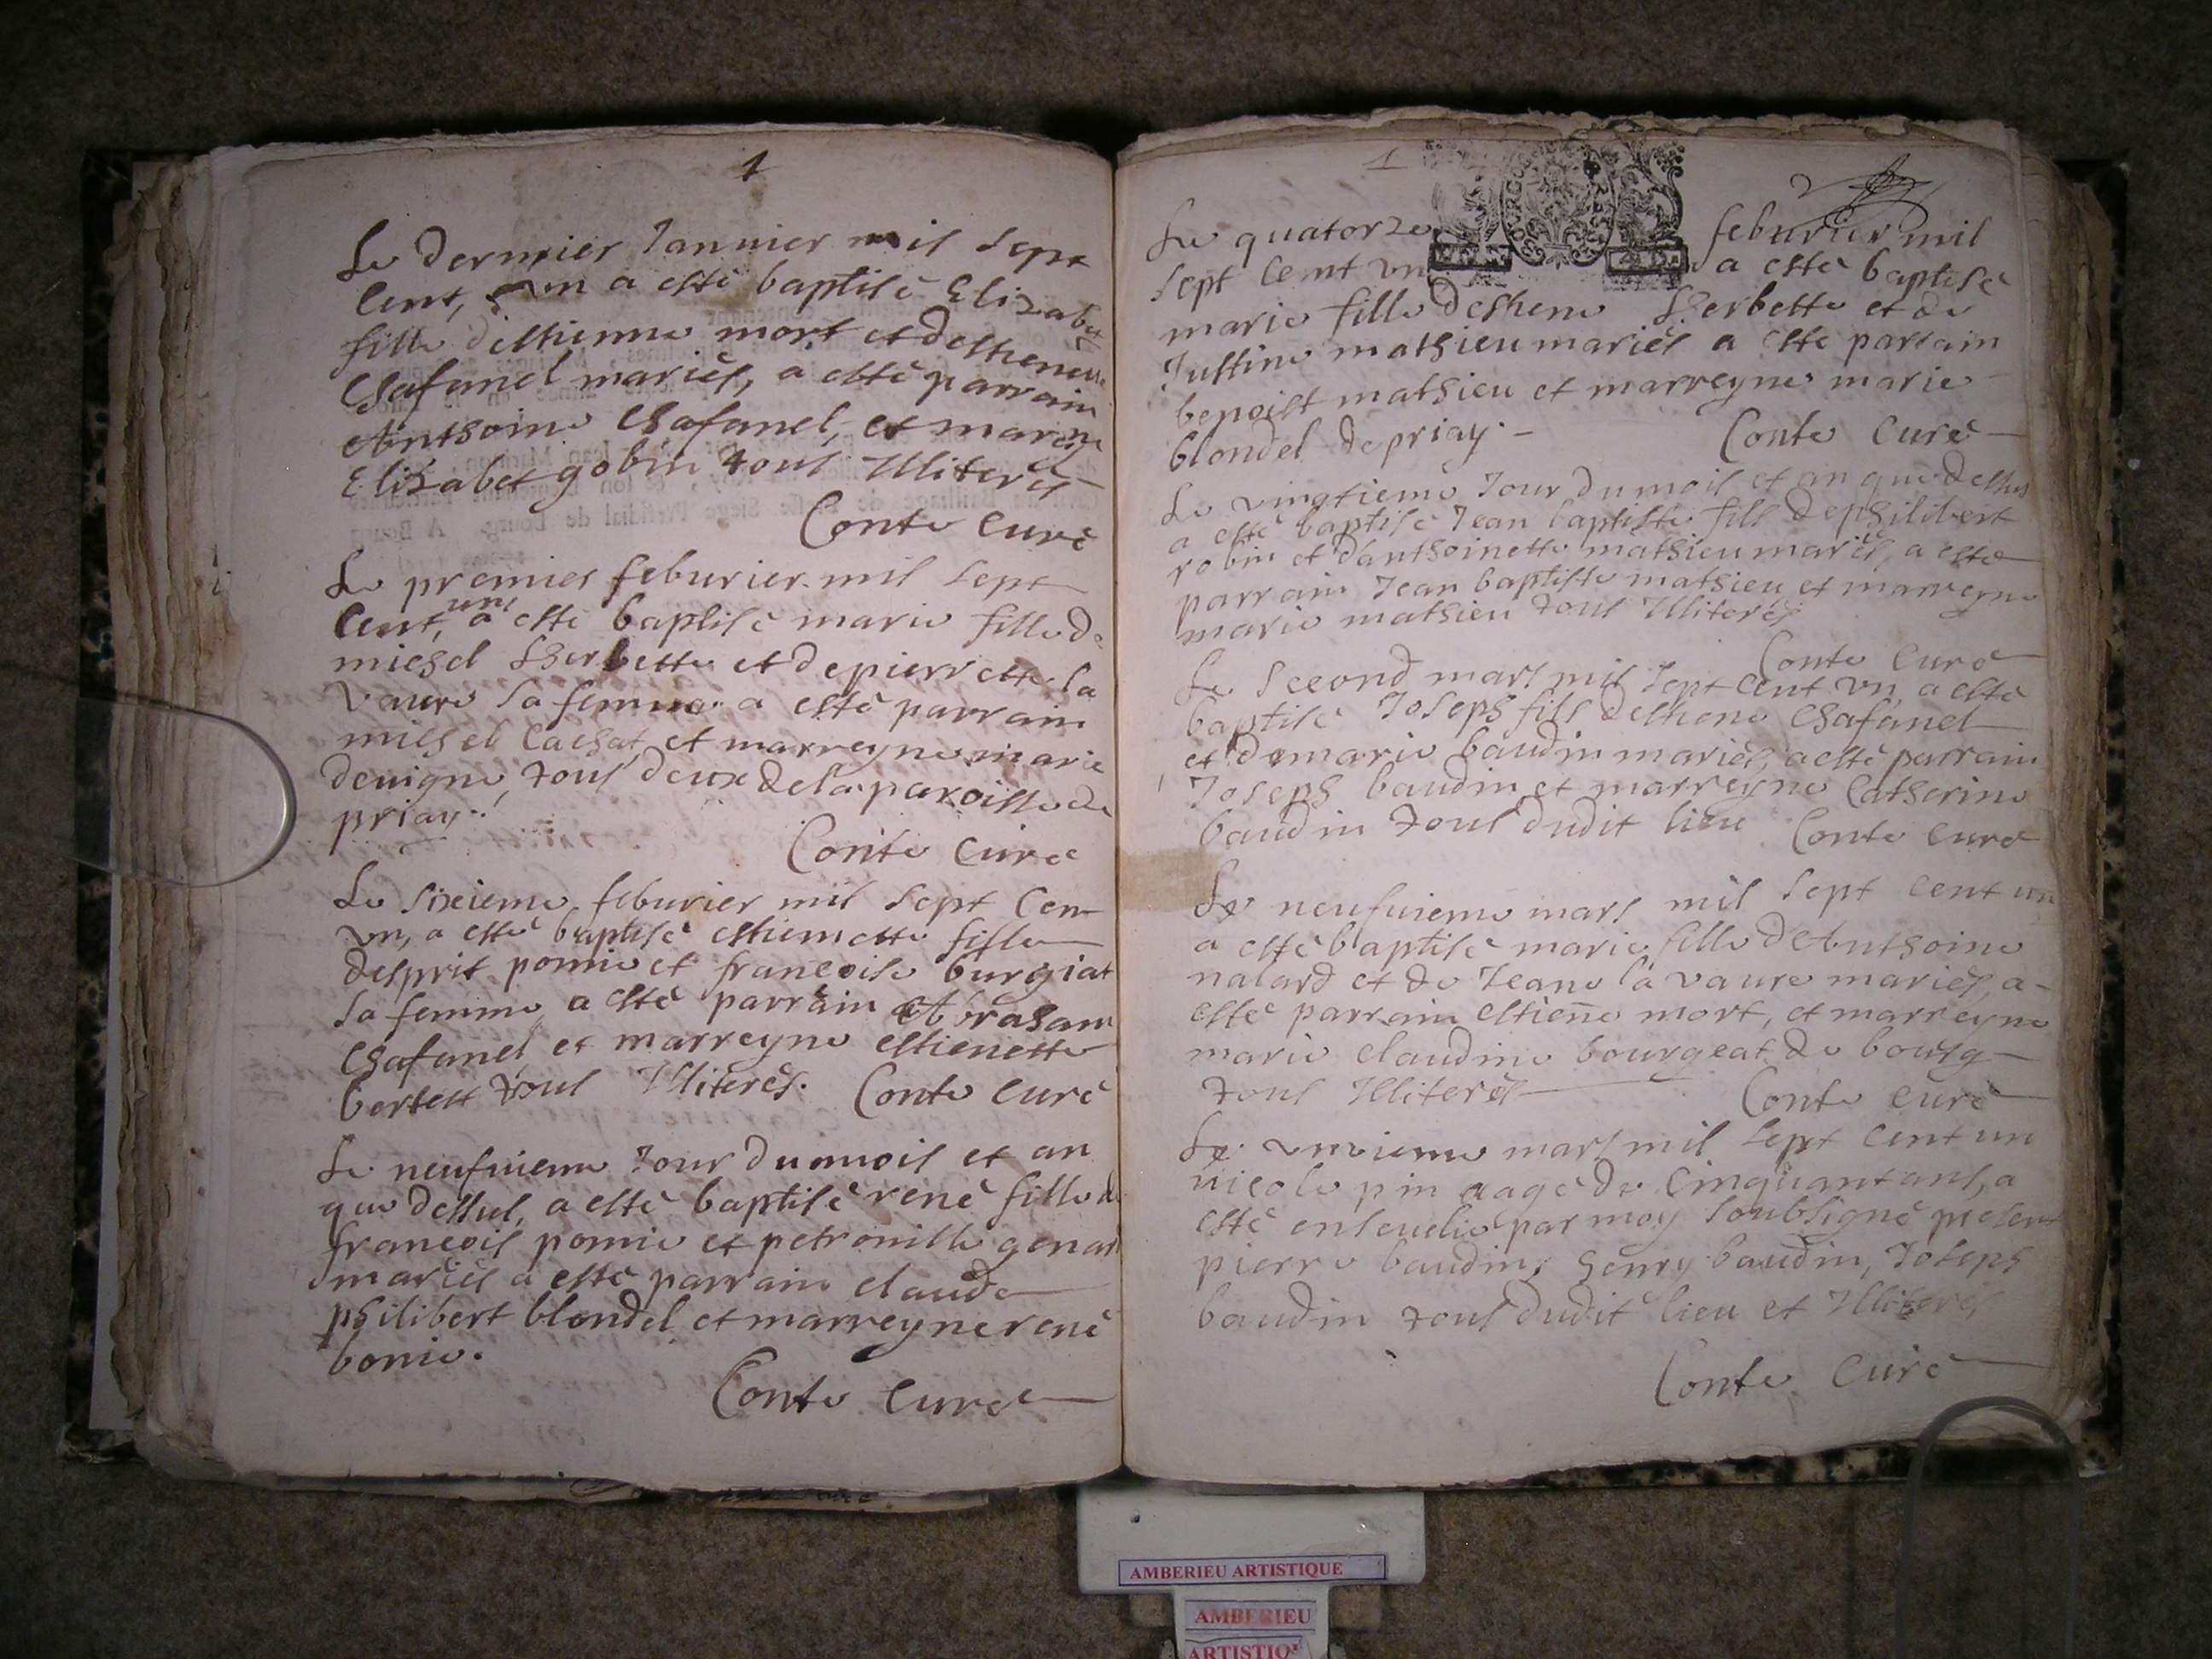 1
Le dernier Janvier mil sept
cent, un a esté baptisé Elizabet
fille d'estienne mort et destienette
Chafanel mariés, a esté parrain
Anthoine Chafanel, et mareyne
Elizabet gobin tous Illiterés
Conte curé
Le premier feburier mil sept
cent, un a esté baptisé marie fille de
michel Lherbette et de pierrette la
vaure sa femme a esté parrain
michel Cachat, et marreyne marie
devigne, tous deux de la paroisse de
priay.
Conte Curé
Le sixieme feburier mil sept cen
un, a esté baptisé estiennette fille
desprit pomie et francoise burgiat
sa femme a esté parrain Abraham
Chafanel et marreyne estienette
bertet tous Illiterés. Conte curé
Le neufvieme Jour du mois et an
que dessus, a esté baptisé renè fille de
francois pomie et petronille genas
mariés a esté parrain claude
philibert blondel et marreyne renè
bonie.
Conte curé
1
2
Le quatorze feburier mil
sept cent un a esté baptisé
marie fille desthene Lherbette et de
Justine mathieu mariés a esté parrain
benoist mathieu et marreyne marie
blondel de priay. Conte Curé
Le vingtieme Jour du mois et an que dessus
a esté baptisé Jean baptiste fils de philibert
robin et danthoinette mathieu mariés, a esté
parrain Jean baptiste mathieu et marreyne
marie mathieu tous Illiterés
Conte curé
Le second mars mil sept cent un, a esté
baptisé Joseph fils desthene Chafanel
et de marie baudin mariés, a esté parrain
Joseph baudin et marreyne Catherine
baudin tous dudit lieu Conte curé
Le neufvieme mars mil sept cent un
a esté baptisé marie fille dAnthoine
nalard et de Jeane la vaure mariés, a
esté parrain estiene mort, et marreyne
marie claudine bourgeat de bourg
tous Illiterés Conte curé
Le unvieme mars mil sept cent un
nicole pin aagé de cinquant ans, a
esté ensevelie par moy soubsigné present
pierre baudin, henry baudin, Joseph
baudin tous dudit lieu et Illiterés
Conte Curé
AMBERIEU ARTISTIQUE
AMBERIEU
ARTISTIQ